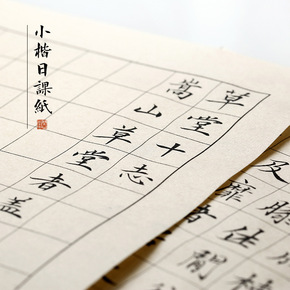 小楷日課紙
草堂十志
嵩山草堂者蓋
及
靡仕
者閒